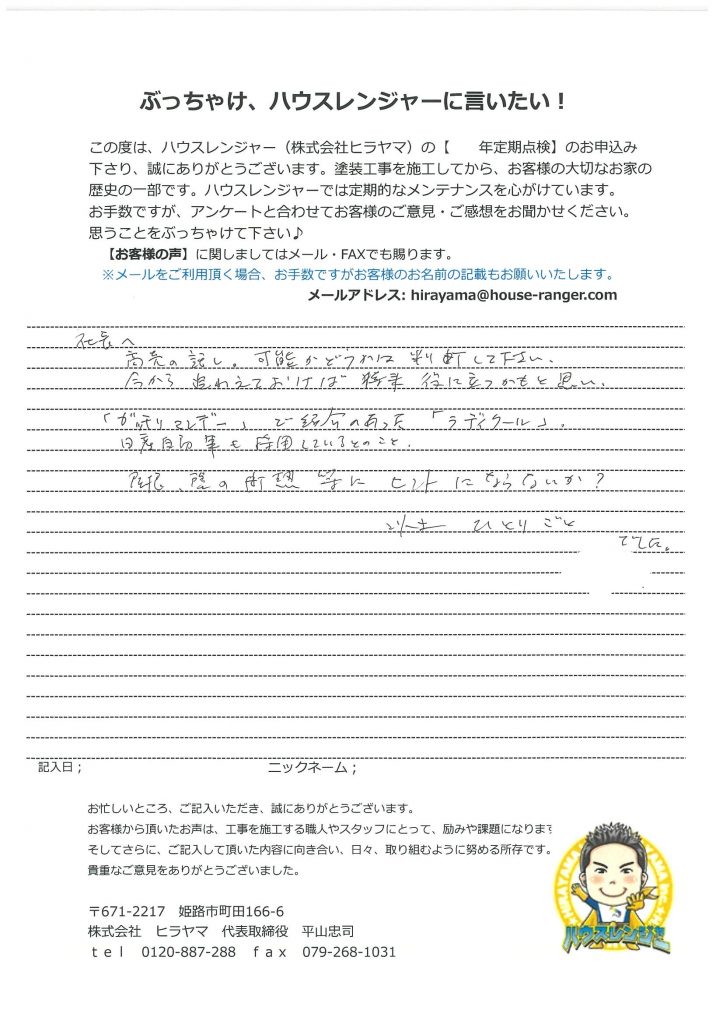 ぶっちゃけ、ハウスレンジャーに言いたい！
この度は、ハウスレンジャー（株式会社ヒラヤマ）の【　　年定期点検】のお申込み
下さり、誠にありがとうございます。塗装工事を施工してから、お客様の大切なお家の
歴史の一部です。ハウスレンジャーでは定期的なメンテナンスを心がけています。
お手数ですが、アンケートと合わせてお客様のご意見・ご感想をお聞かせください。
思うことをぶっちゃけて下さい♪
【お客様の声】に関しましてはメール・FAXでも賜ります。
※メールをご利用頂く場合、お手数ですがお客様のお名前の記載もお願いいたします。
メールアドレス: hirayama@house-ranger.com
社長へ
商売の話し。可能かどうかは判断して下さい、
今から おけば 将来 役に立つかもと思い、
で紹介のあった「ラディクール」。
日産自動車も採用しているとのこと、
屋根、 等に ヒントにならないか？
以上 ひとりごと
でした。
記入日；
ニックネーム；
お忙しいところ、ご記入いただき、誠にありがとうございます。
お客様から頂いたお声は、工事を施工する職人やスタッフにとって、励みや課題になります
そしてさらに、ご記入して頂いた内容に向き合い、日々、取り組むように努める所存です。
貴重なご意見をありがとうございました。
〒671-2217　姫路市町田166-6
株式会社　ヒラヤマ　代表取締役　平山忠司
ｔｅｌ　0120-887-288　ｆａｘ　079-268-1031
HIRAYAMA
ハウスレンジャー